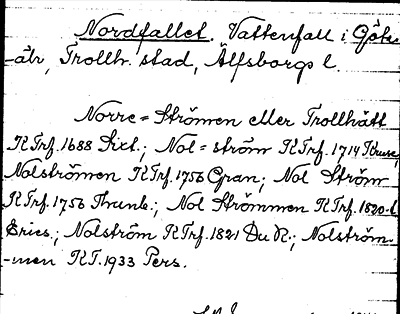 Nordfallet. Vattenfall i Göta
-älv, Trollh. stad, Älfsborgs l.
Norre = Strömen eller Trollhätt
KTrf. 1688 Kict.; Nol = ström KTrf. 1714 Kruse,
Nolströmen KTrf. 1756 Gran; Nol Ström
KTrf. 1756 Thunb.; Nol Strömmen KTrf. 1820-t.
Erics.; Nolström KTrf. 1821 Du R.; Nolström-
-men KT. 1933 Pers.